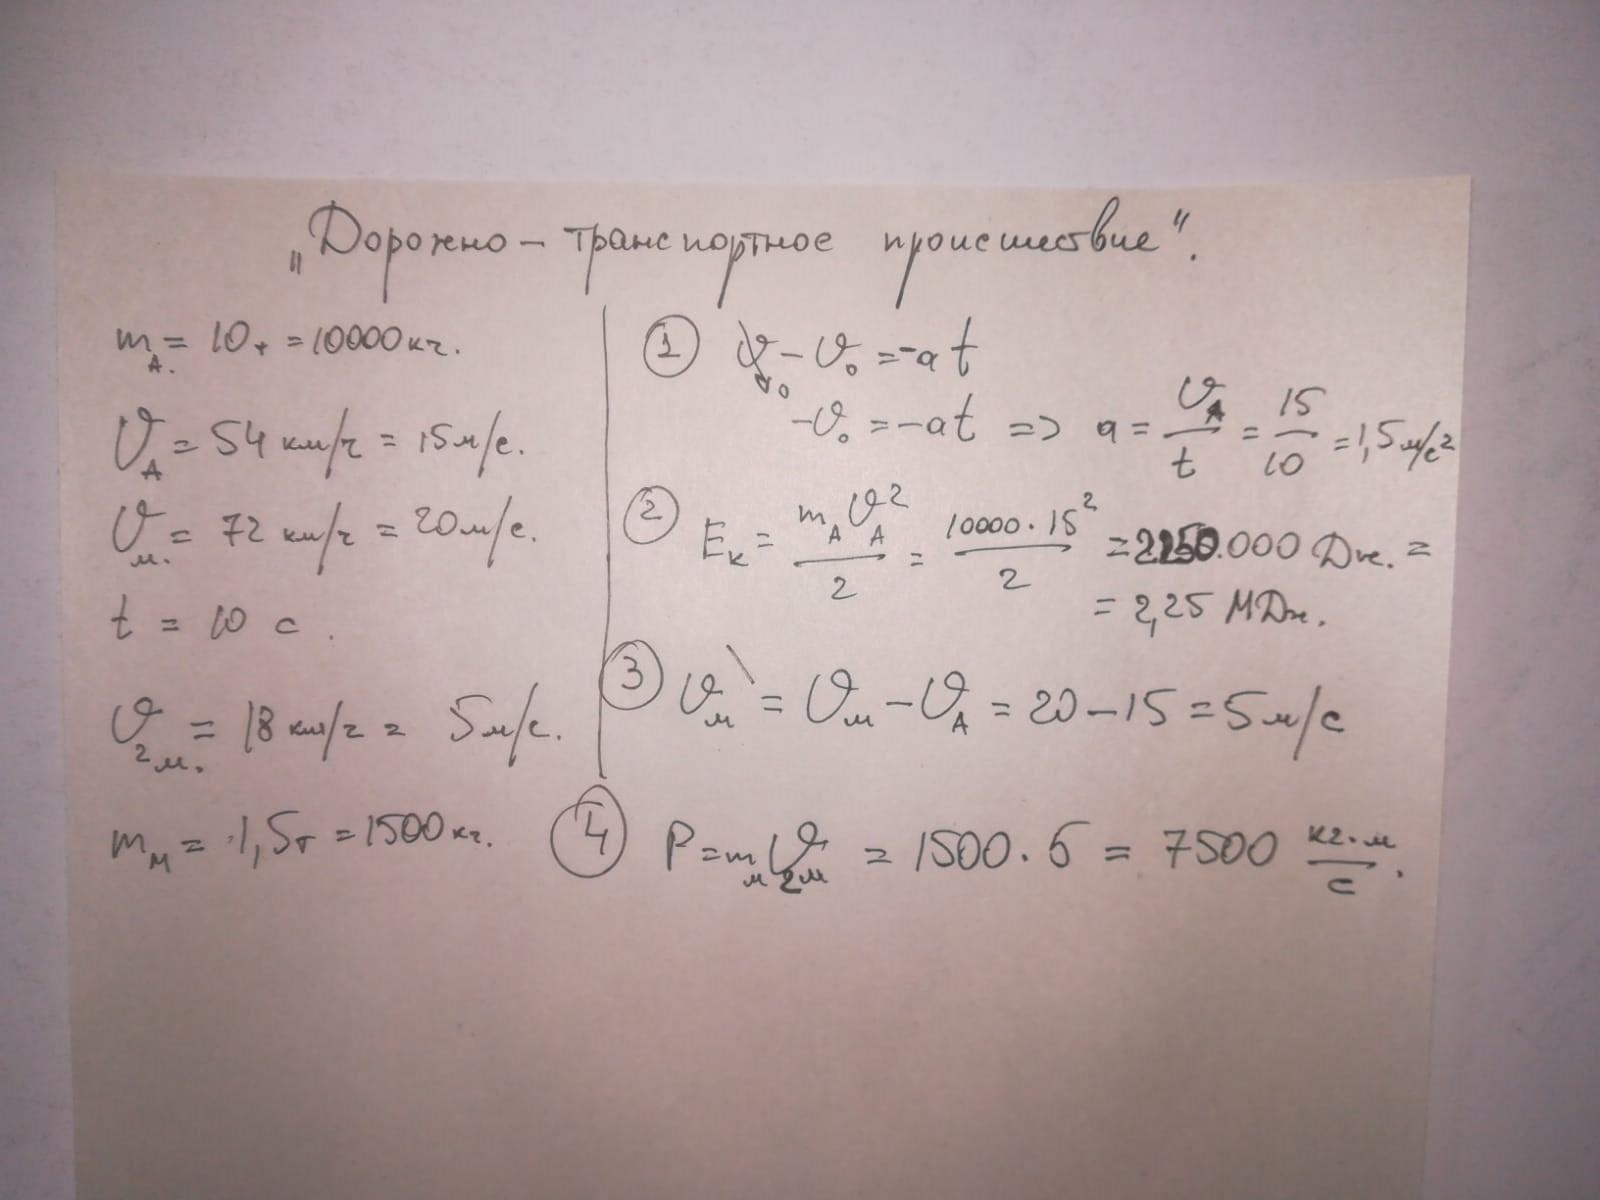 „Дорожно-транспортное происшествие“.
m_A. = 10т = 10000 кг.
V_A = 54 км/ч = 15 м/с.
V_м. = 72 км/ч = 20 м/с.
t = 10 с.
V_2м. = 18 км/ч = 5 м/с.
m_м = 1,5т = 1500 кг.
① V - V₀ = -at
-V₀ = -at => a = V_A/t = 15/10 = 1,5 м/с²
② E_к = m_A V_A²/2 = 10000·15²/2 = 2250.000 Дж. =
= 2,25 МДж.
③ V_м` = V_м - V_A = 20 - 15 = 5 м/с
④ P = m_м V_2м = 1500·5 = 7500 кг·м/с.